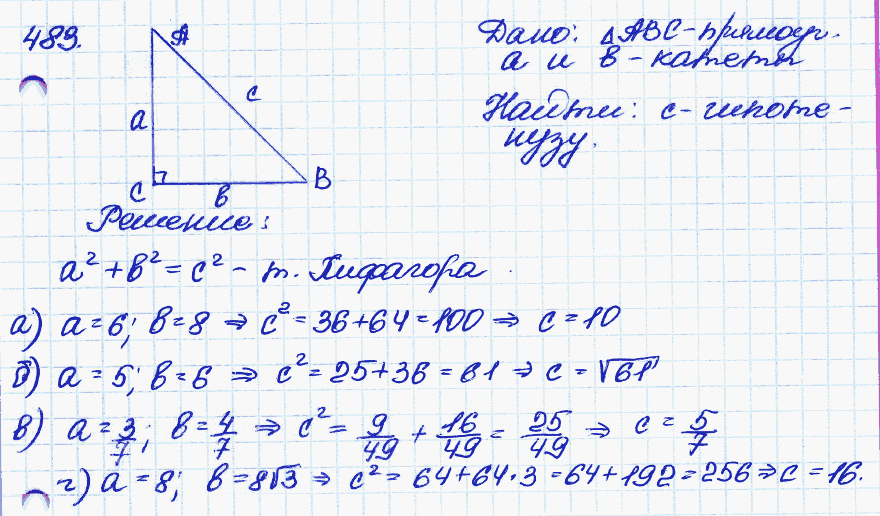 483.
A
a
c
C
в
B
Дано: △ABC - прямоуг.
a и в - катеты
Найти: c - гипоте-
нузу.
Решение:
a² + в² = c² - т. Пифагора
а) a = 6; в = 8 ⇒ c² = 36 + 64 = 100 ⇒ c = 10
б) a = 5; в = 6 ⇒ c² = 25 + 36 = 61 ⇒ c = √61
в) a = 3/7; в = 4/7 ⇒ c² = 9/49 + 16/49 = 25/49 ⇒ c = 5/7
г) a = 8; в = 8√3 ⇒ c² = 64 + 64 · 3 = 64 + 192 = 256 ⇒ c = 16.